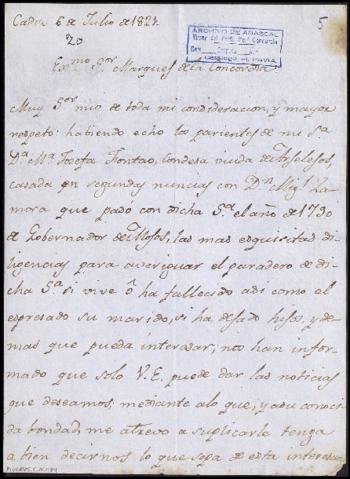 Cadiz 6 de Julio de 1821.
5
20
ARCHIVO DE ABASCAL
Exmo. Sor. Marques de la Concordia
Muy Sor. mio de toda mi consideracion, y mayor
respeto: habiendo echo los parientes de mi Sa.
Da. Ma. Josefa Fontao, Condesa viuda de
casada en segundas nuncias con Dn. Migl. Za-
mora que paso con dicha Sa. el año de 1790
de Gobernador de Mojos, las mas esquisitas di-
ligencias para averiguar el paradero de di-
cha Sa. si vive ó ha fallecido asi como el
espresado su marido, si ha dejado hijos, y de-
mas que pueda interesar, nos han infor-
mado que solo V.E. puede dar las noticias
que deseamos, mediante alo que, y asu conoci-
da bondad, me atrevo a suplicarle tenga
a bien decirnos lo que sepa de esta interesan